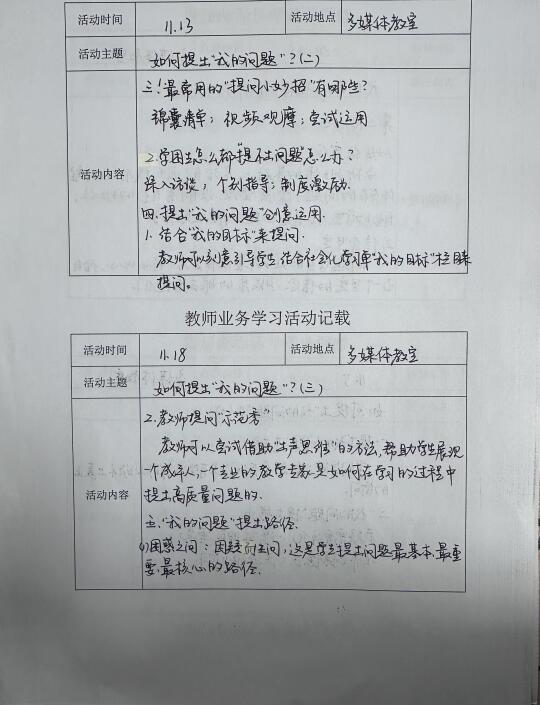 活动时间 11.13 活动地点 多媒体教室
活动主题 如何提出"我的问题"?(二)
三!最常用的"提问小妙招"有哪些?
锦囊清单;视频观摩;尝试运用
活动内容
2.学困生怎么都"提不出问题"怎么办?
深入访谈;个别指导;制度激励.
四.提出"我的问题"创意运用.
1.结合"我的目标"来提问.
教师可以刻意引导学生结合社会化学习单"我的目标"栏目来
提问。
教师业务学习活动记载
活动时间 11.18 活动地点 多媒体教室
活动主题 如何提出"我的问题"?(三)
2.教师提问"示范秀"
教师可以尝试借助"出声思维"的方法,帮助学生展现
一个成年人,一个专业的教学专家是如何在学习的过程中
活动内容
提出高质量问题的.
五."我的问题"提出路径.
(1)困惑之问:因疑而问,这是学生提出问题最基本.最重
要.最核心的路径.